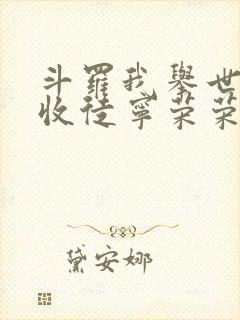 斗羅我舉世
收徒寧荣荣
黛安娜